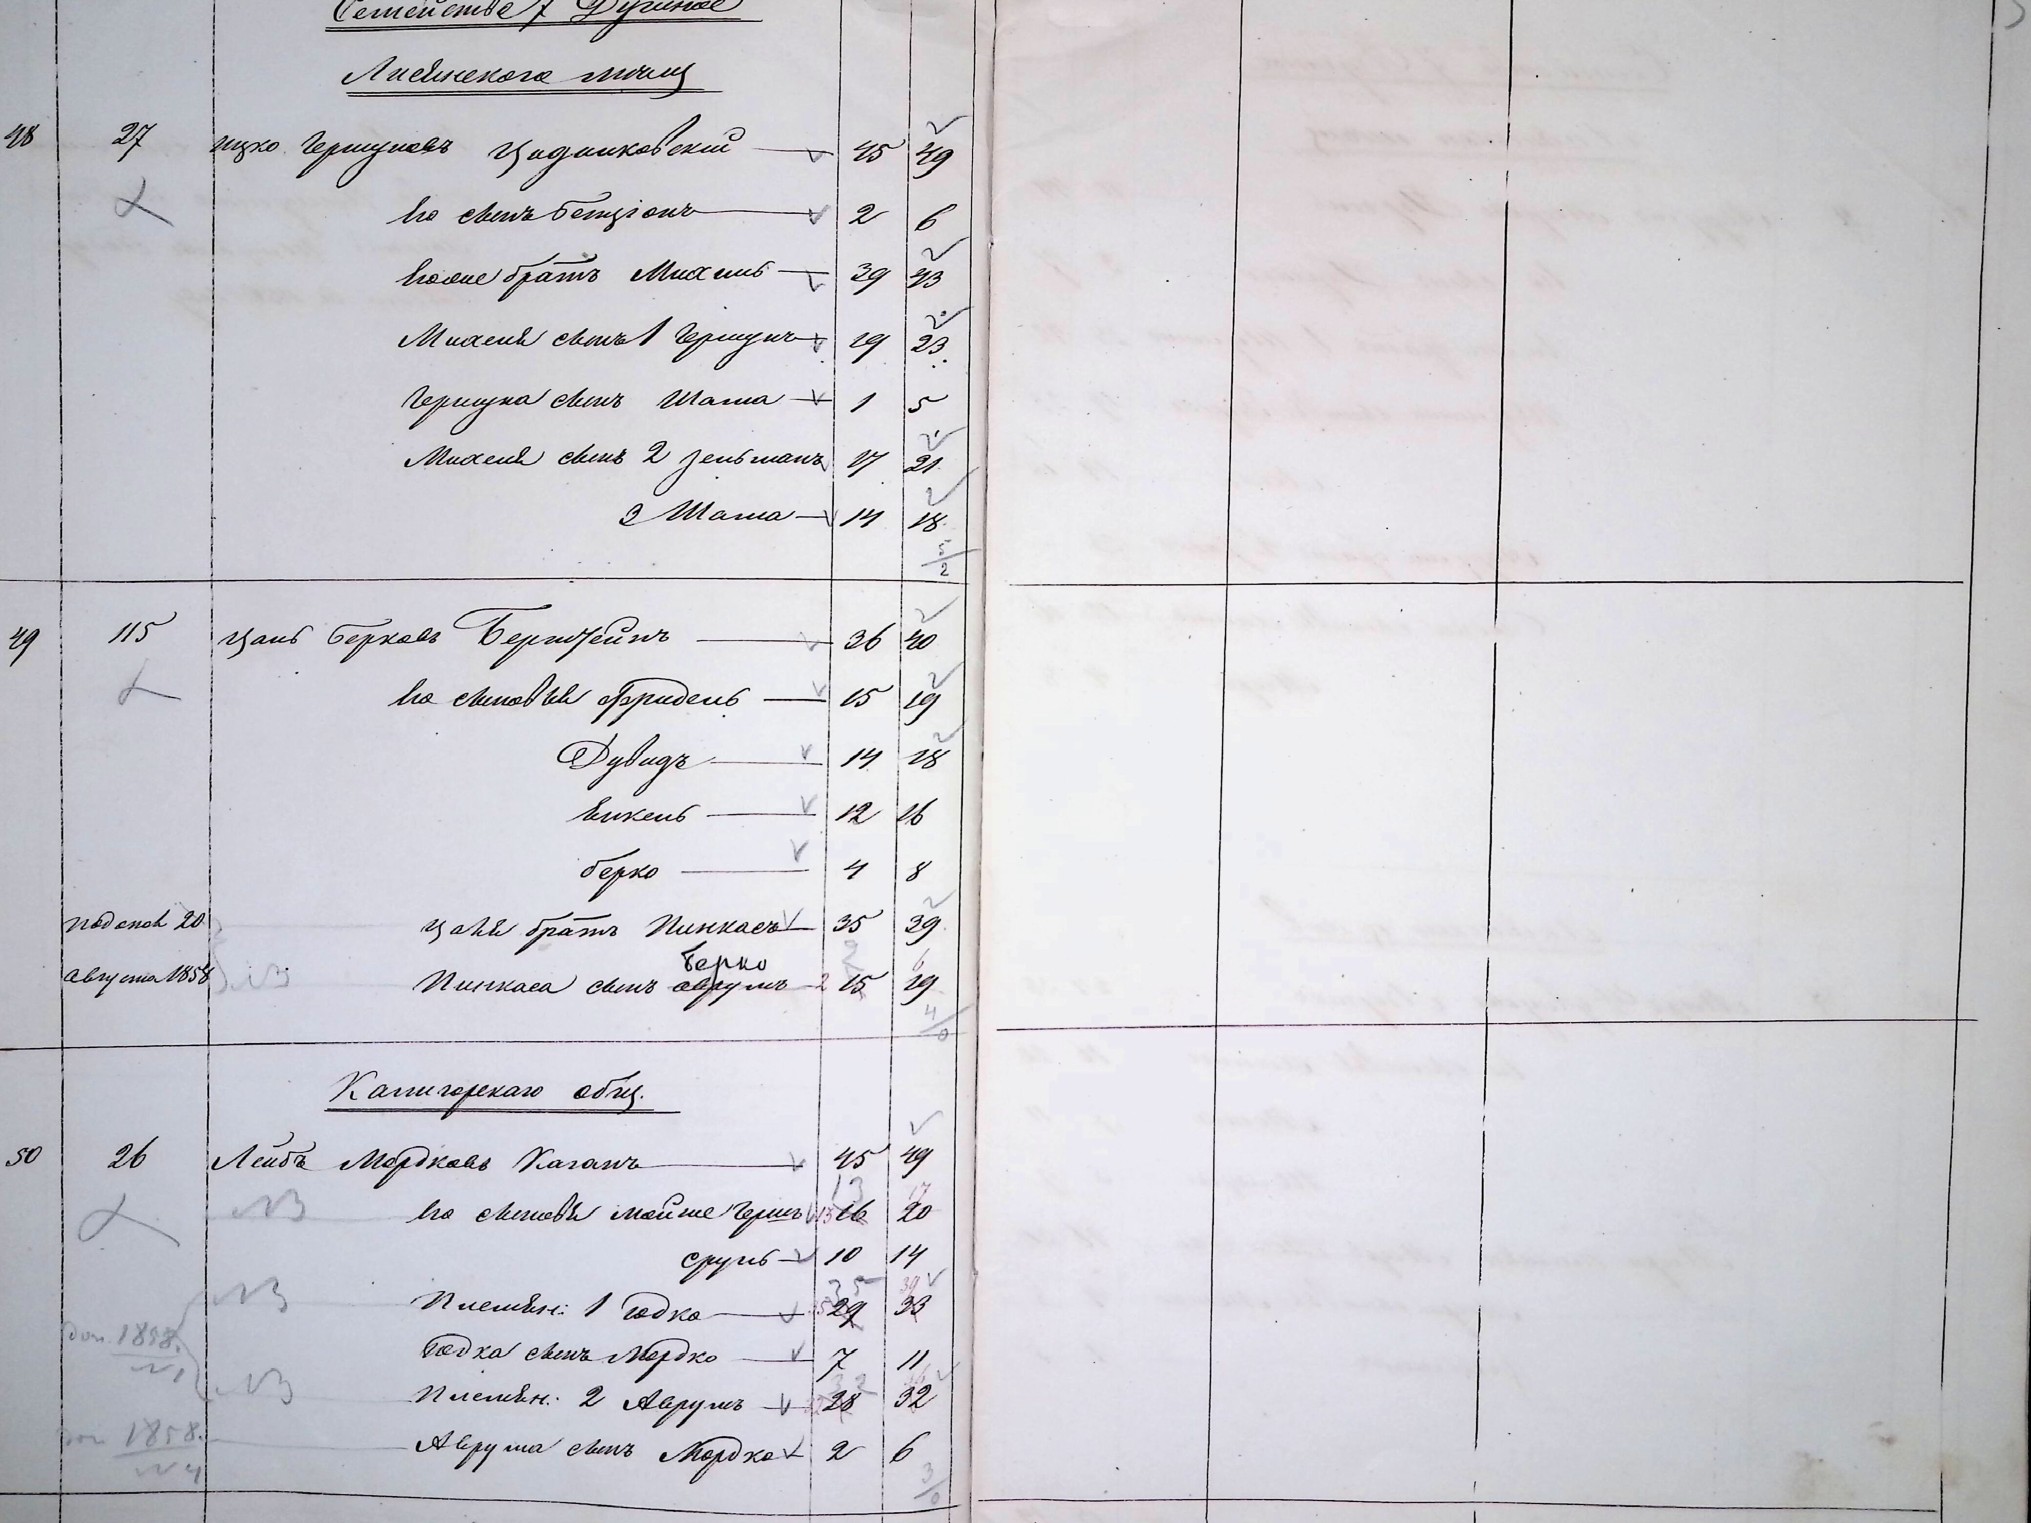 Лисянского мѣщ
48 27 Ицко Гершуновъ 45 49
Его сынъ Бенціонъ 2 6
Его же братъ Михель 39 43
Михеля сынъ 1 Гершунъ 19 23
Гершуна сынъ Шама 1 5
Михеля сынъ 2 Зельманъ 17 21
3 Шама 14 18
5/2
49 115 Цаль Берковъ Бернштейнъ 36 40
Его сыновья Фридель 15 19
Дувидъ 14 18
Енкель 12 16
Берко 4 8
20 Цаля братъ Пинкасъ 35 39
Берко 2 6
августа 1858 NB Пинкаса сынъ Аврумъ 2 15 19
4/0
Калигорскаго общ.
50 26 Лейбъ Мордковъ Каганъ 45 49
13 17
NB Его сыновья Мойше Гершъ 13 16 20
Сруль 10 14
35 39
NB Племян: 1 Годко 35 29 33
Годка сынъ Мордко 7 11
доп. 1858. 32 36
№ 1 NB Племян: 2 Аврумъ 32 28 32
доп 1858. Аврума сынъ Мордко 2 6
№ 4 3/0